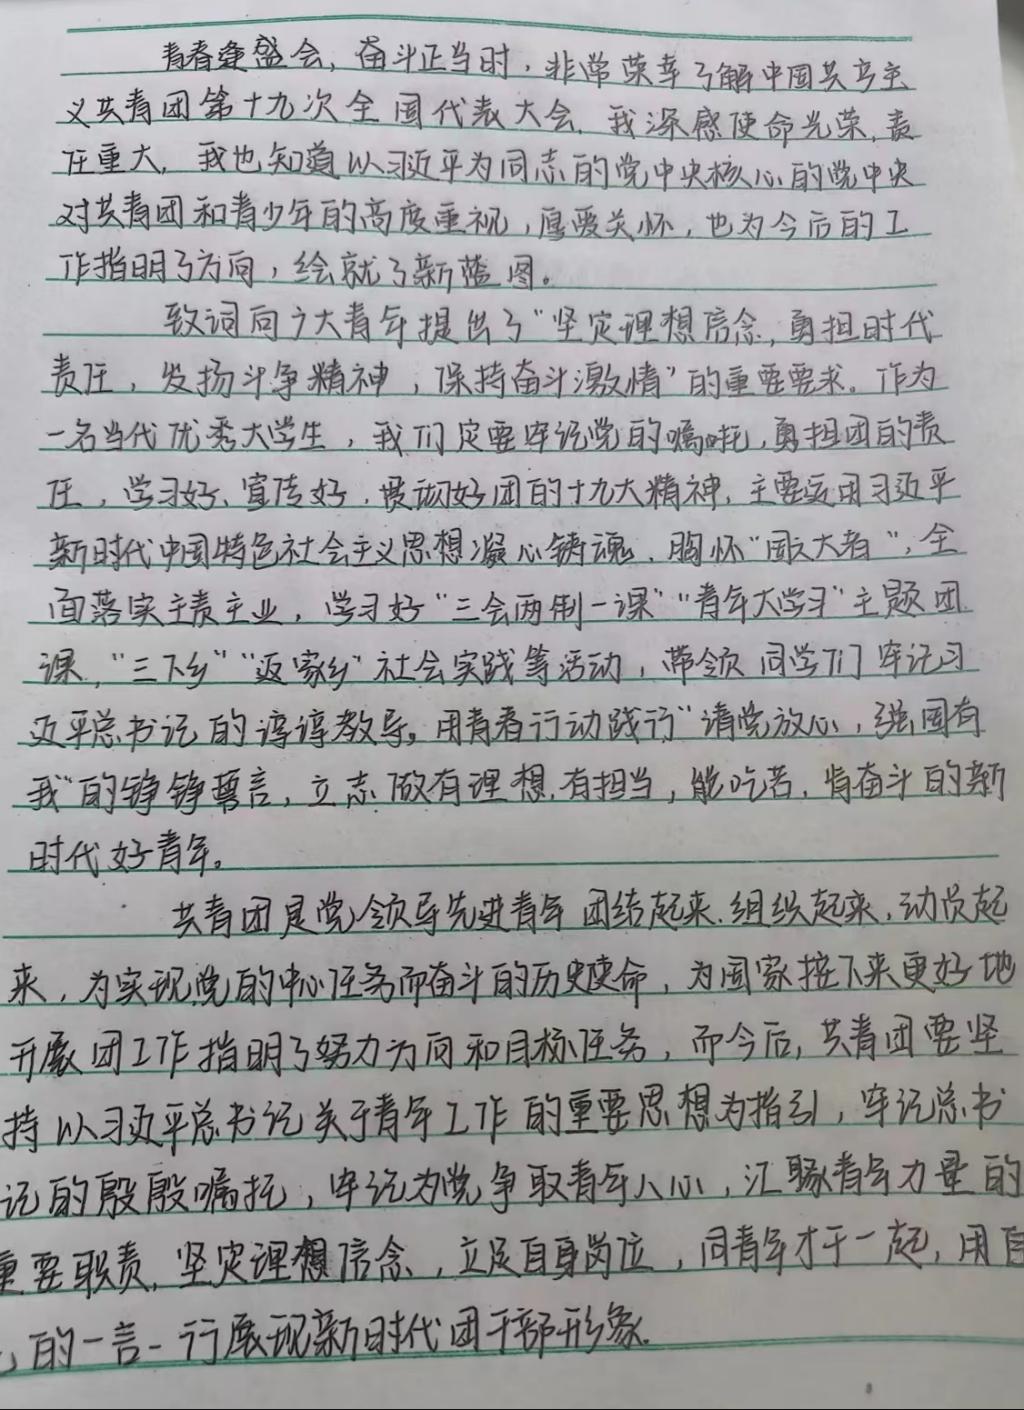 青春逢盛会，奋斗正当时，非常荣幸了解中国共产主
义共青团第十九次全国代表大会，我深感使命光荣，责
任重大，我也知道以习近平为同志的党中央核心的党中央
对共青团和青少年的高度重视，厚爱关怀，也为今后的工
作指明了方向，绘就了新蓝图。
致词向广大青年提出了“坚定理想信念，勇担时代
责任，发扬斗争精神，保持奋斗激情”的重要要求。作为
一名当代优秀大学生，我们定要牢记党的嘱咐，勇担团的责
任，学习好、宣传好，贯彻好团的十九大精神，主要运用习近平
新时代中国特色社会主义思想凝心铸魂，胸怀“国之大者”，全
面落实主责主业，学习好“三会两制一课”“青年大学习”主题团
课，“三下乡”“返家乡”社会实践等活动，带领同学们牢记习
近平总书记的谆谆教导。用青春行动践行“请党放心，强国有
我”的铮铮誓言，立志做有理想，有担当，能吃苦，肯奋斗的新
时代好青年。
共青团是党领导先进青年团结起来，组织起来，动员起
来，为实现党的中心任务而奋斗的历史使命，为国家接下来更好地
开展团工作指明了努力方向和目标任务，而今后，共青团要坚
持以习近平总书记关于青年工作的重要思想为指引，牢记总书
记的殷殷嘱托，牢记为党争取青年人心，汇聚青年力量的
重要职责，坚定理想信念，立足自身岗位，同青年才干一起，用自
的一言一行展现新时代团干部形象。